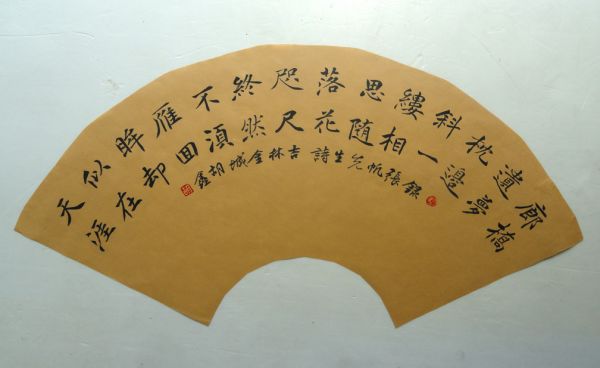 廊橋
遺夢
枕邊
斜一
縷相
思隨
落花
咫尺
終然
不湏
雁回
眸却
似在
天涯
錄張帆先生詩吉林金城胡鑫